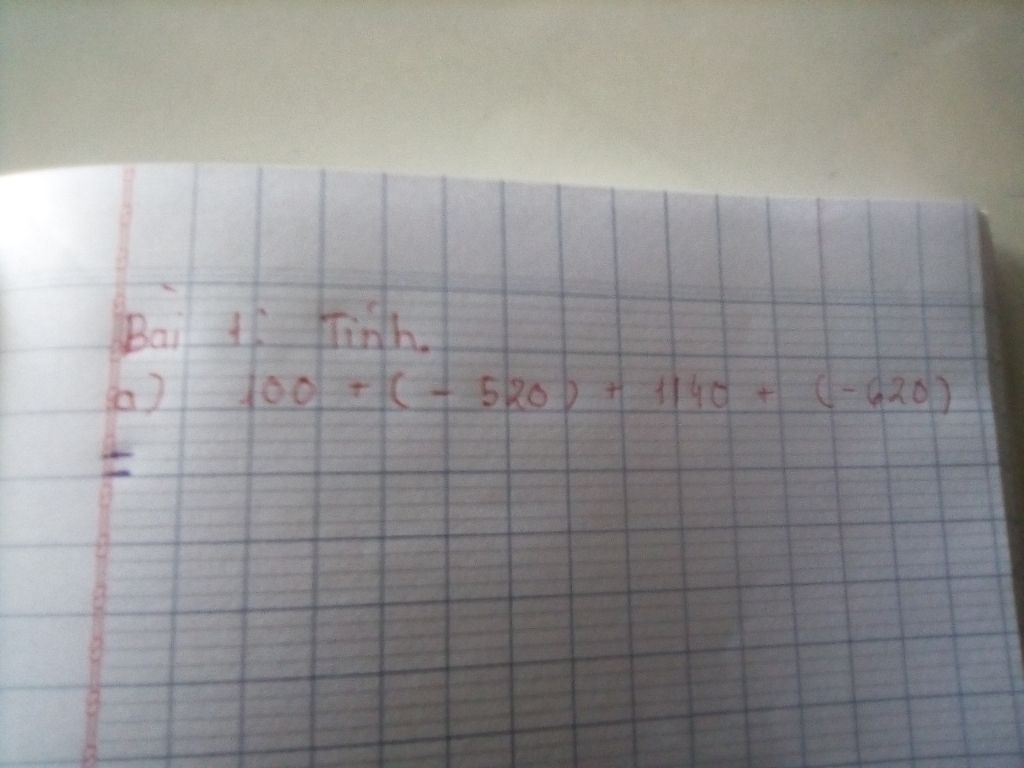 Bài 1: Tính.
a) 100 + ( - 520 ) + 1140 + (-620)
=